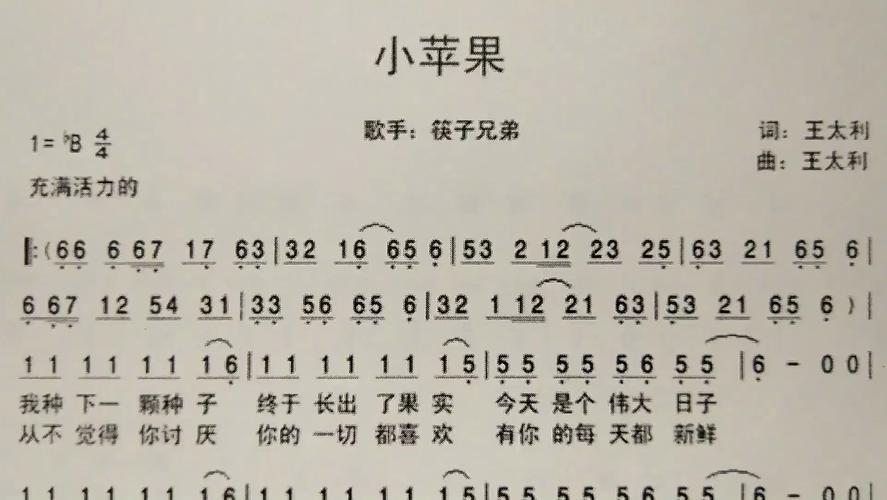 小苹果
歌手：筷子兄弟
词：王太利
1=♭B 4/4
曲：王太利
充满活力的
‖:(66 667 17 63|32 16 65 6|53 212 23 25|63 21 65 6|
667 12 54 31|33 56 65 6|32 112 21 63|53 21 65 6)|
11 11 11 16|11 11 11 15|55 55 56 55|6 - 0 0|
我种 下一 颗种 子 终于 长出 了果 实 今天 是个 伟大 日子
从不 觉得 你讨 厌 你的 一切 都喜 欢 有你 的每 天都 新鲜
11 11 11 16|11 11 11 15|55 55 56 55|6 - 0 0|